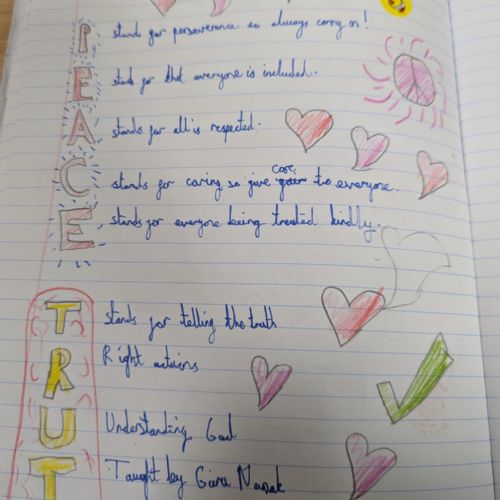 P stands for perseverance so always carry on!
E stands for that everyone is included.
A stands for all is respected.
C stands for caring so give care to everyone.
E stands for everyone being treated kindly.
T stands for telling the truth
R Right actions
U Understanding God
T Taught by Guru Nanak